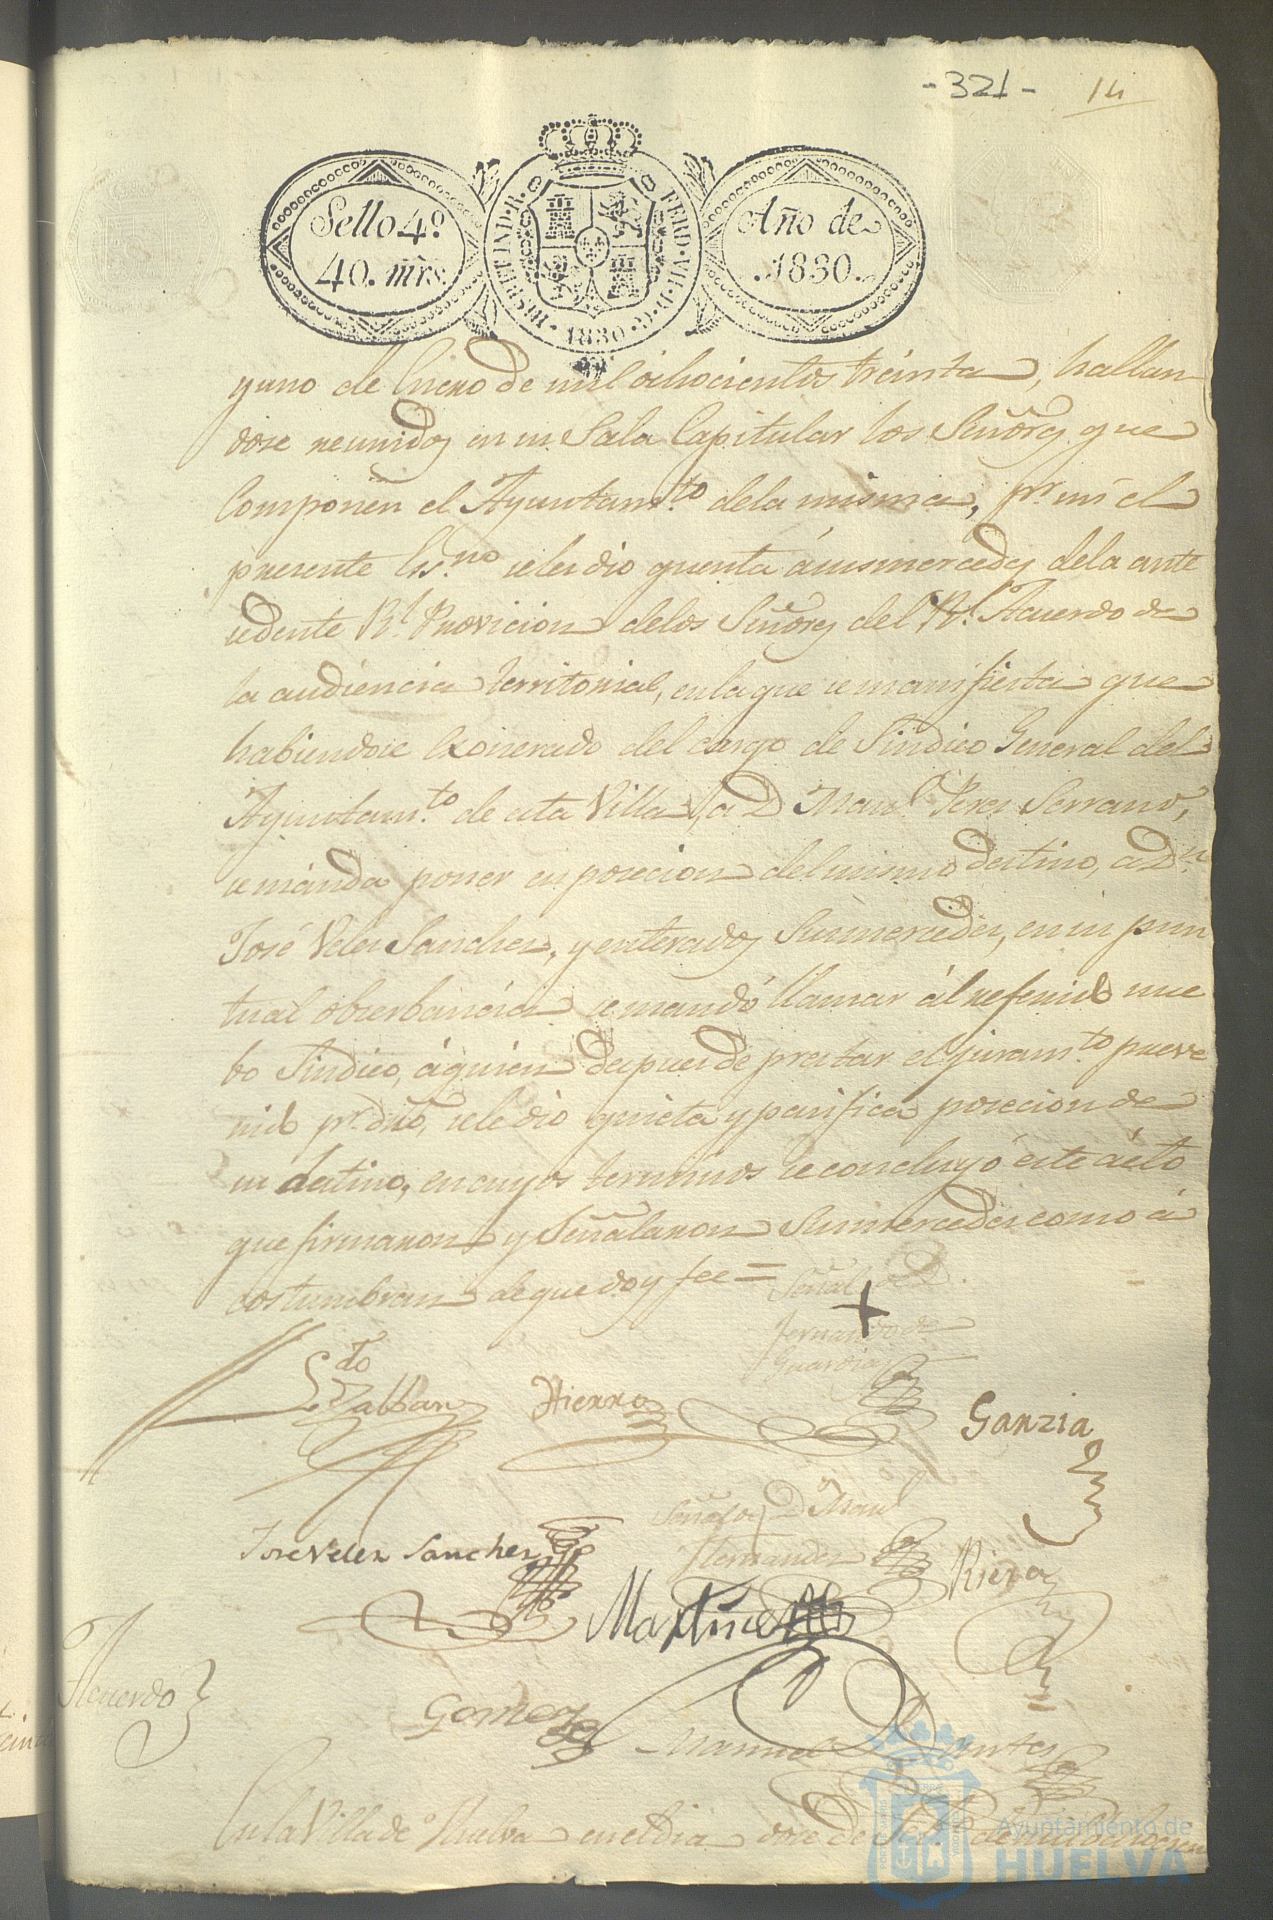 -321- 14
Sello 4º.
40. mrs.
HISP. ET IND. R. FERD. VII. D. G.
1830
Año de
.1830.
yuno de Enero de mil ochocientos treinta, hallan
dose reunidos en su Sala Capitular los Señores que
Componen el Ayuntamto. dela misma, pr. mi el
presente Essno. se les dio quenta á sus mercedes dela ante
cedente Rl. Provicion delos Señores del Rl. Acuerdo de
la audiencia territorial, en la que se manifiesta que
habiendose Exonerado del cargo de Sindico General del
Ayuntamto. de esta Villa, a D Manl. Perez Serrano,
se mánda poner en posecion del mismo destino, a Dn.
José Velez Sanchez, y enterados Sus mercedes, en su pun
tual obserbancia se mandó llamar ál referido nue
bo Sindico, á quien despues de prestar el juramto. preve
nido pr. dro, se le dio quieta y pacifica posecion de
su destino, en cuyos terminos se concluyó este ácto
que firmaron y Señalaron Sus mercedes como á
costumbran de que doy fee =
Señal de D.
Fernando de
Guardia
Ldo
Zalvan
Hierro
Ganzia
Señal de D Manl
Hernandez
Jose Velez Sanchez
Riera
Martinez
Acuerdo
Gomez
Manuel
En la Villa de Huelva en el dia doze de de mil ochocien
Ayuntamiento de
HUELVA